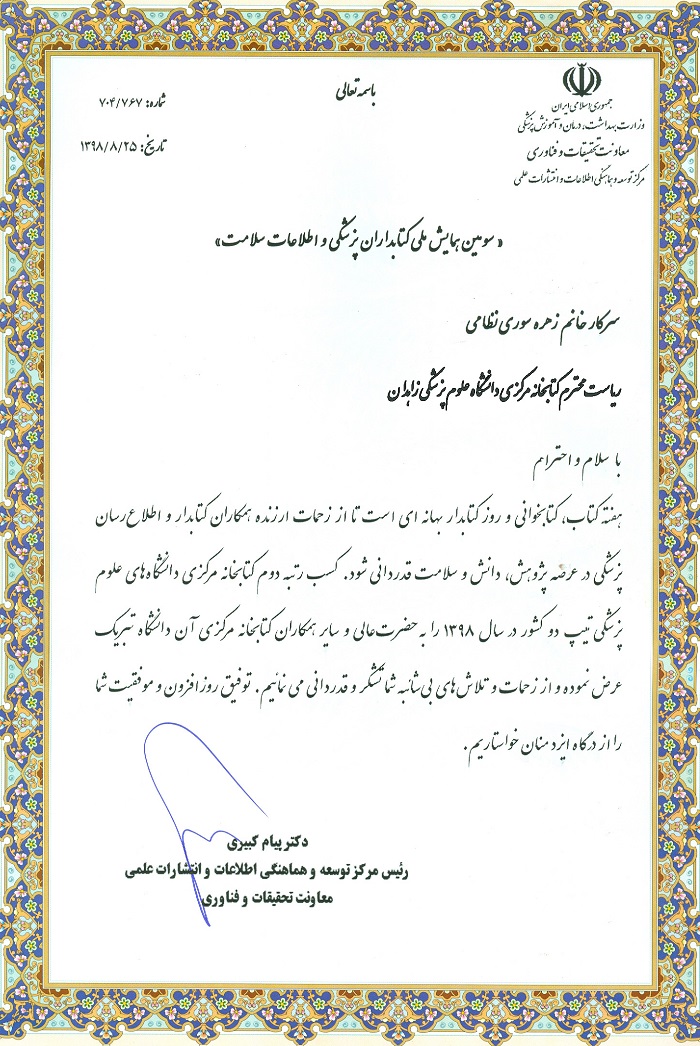 باسمه تعالی
جمهوری اسلامی ایران
وزارت بهداشت، درمان و آموزش پزشکی
معاونت تحقیقات و فناوری
مرکز توسعه و هماهنگی اطلاعات و انتشارات علمی
شماره: ۷۰۴/۷۶۷
تاریخ: ۱۳۹۸/۸/۲۵
« سومین همایش ملی کتابداران پزشکی و اطلاعات سلامت»
سرکار خانم زهره سوری نظامی
ریاست محترم کتابخانه مرکزی دانشگاه علوم پزشکی زاهدان
با سلام و احترام
هفته کتاب، کتابخوانی و روز کتابدار بهانه ای است تا از زحمات ارزنده همکاران کتابدار و اطلاع رسان
پزشکی در عرصه پژوهش، دانش و سلامت قدردانی شود. کسب رتبه دوم کتابخانه مرکزی دانشگاه های علوم
پزشکی تیپ دو کشور در سال ۱۳۹۸ را به حضرت عالی و سایر همکاران کتابخانه مرکزی آن دانشگاه تبریک
عرض نموده و از زحمات و تلاش های بی شائبه شما تشکر و قدردانی می نمائیم. توفیق روزافزون و موفقیت شما
را از درگاه ایزد منان خواستاریم.
دکتر پیام کبیری
رئیس مرکز توسعه و هماهنگی اطلاعات و انتشارات علمی
معاونت تحقیقات و فناوری